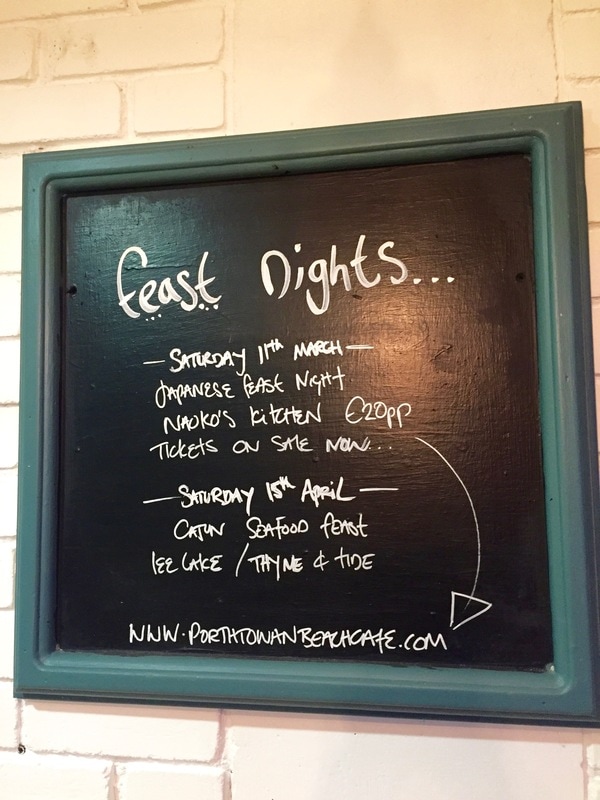 feast Nights...
— SATURDAY 11th MARCH —
JAPANESE feast NigHt
NAOKO'S KiTCHEN £20pp
TICKETS ON SALE NOW...
— SATURDAY 15th APRiL —
CAJUN SEAFOOD feast
lee CAKE / THYME & TIDE
WWW.PORTHTOWANBEACHCAFE.COM